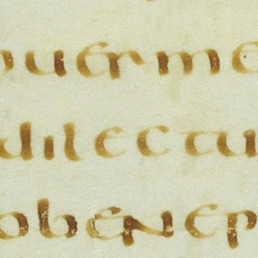 nuerme
dilectu
obener